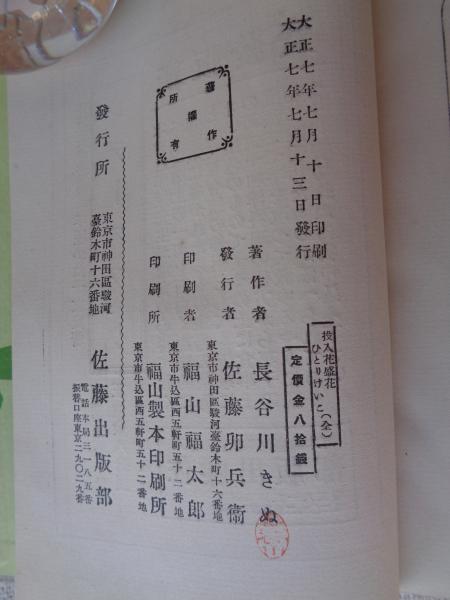 大正七年七月十日印刷
大正七年七月十三日發行
投入花盛花
ひとりけいこ(全)
定價金八拾錢
著作者 長谷川きぬ
發行者 佐藤卯兵衞
東京市神田區駿河臺鈴木町十六番地
印刷者 福山福太郎
東京市牛込區西五軒町五十二番地
印刷所 福山製本印刷所
東京市牛込區西五軒町五十二番地
著作
權
所有
發行所
東京市神田區駿河
臺鈴木町十六番地
佐藤出版部
電話本局三一八五番
振替口座東京二九〇二九番